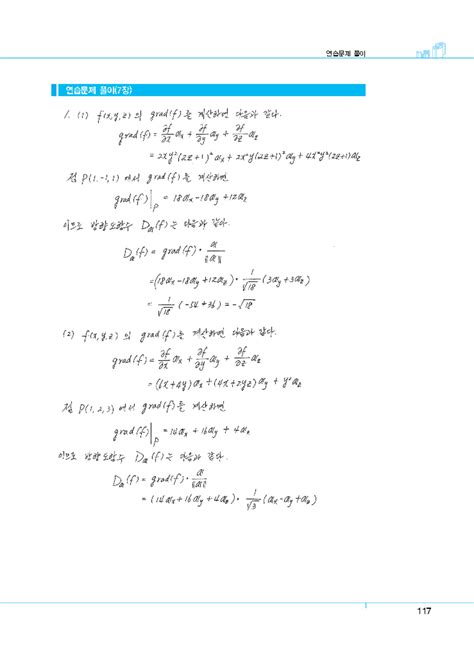 연습문제 풀이
연습문제 풀이(7장)
1. (1) f(x,y,z)의 grad(f)를 계산하면 다음과 같다.
grad(f) = ∂f/∂x 𝕒x + ∂f/∂y 𝕒y + ∂f/∂z 𝕒z
= 2xy²(2z+1)²𝕒x + 2x²y(2z+1)²𝕒y + 4x²y²(2z+1)𝕒z
점 P(1,-1,1)에서 grad(f)를 계산하면
grad(f)|P = 18𝕒x - 18𝕒y + 12𝕒z
이므로 방향도함수 D𝕒(f)는 다음과 같다.
D𝕒(f) = grad(f)· 𝕒/‖𝕒‖
= (18𝕒x - 18𝕒y + 12𝕒z)· 1/√18 (3𝕒y + 3𝕒z)
= 1/√18 (-54 + 36) = -√18
(2) f(x,y,z)의 grad(f)를 계산하면 다음과 같다.
grad(f) = ∂f/∂x 𝕒x + ∂f/∂y 𝕒y + ∂f/∂z 𝕒z
= (6x+4y)𝕒x + (4x+2yz)𝕒y + y²𝕒z
점 P(1,2,3)에서 grad(f)를 계산하면
grad(f)|P = 14𝕒x + 16𝕒y + 4𝕒z
이므로 방향도함수 D𝕒(f)는 다음과 같다.
D𝕒(f) = grad(f)· 𝕒/‖𝕒‖
= (14𝕒x + 16𝕒y + 4𝕒z)· 1/√3 (𝕒x - 𝕒y + 𝕒z)
117